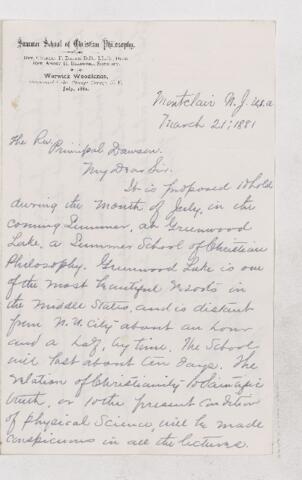 Summer School of Christian Philosophy.
Rev. Charles F. Deems D.D., LL.D., Pres.
Rev. Amory H. Bradford, Secretary.
Warwick Woodlands,
Greenwood Lake, Orange County, N. Y.
July, 1881.
Montclair N.J. U.S.A
March 21, 1881
The Rev. Principal Dawson.
My Dear Sir.
It is proposed to hold
during the month of July, in the
coming Summer, at Greenwood
Lake, a Summer School of Christian
Philosophy. Greenwood Lake is one
of the most beautiful resorts in
the Middle States, and is distant
from N.Y. City about an hour
and a half, by time. The School
will last about ten days. The
relation of Christianity to Scientific
truth, or to the present condition
of physical Science, will be made
conspicuous in all the lectures.